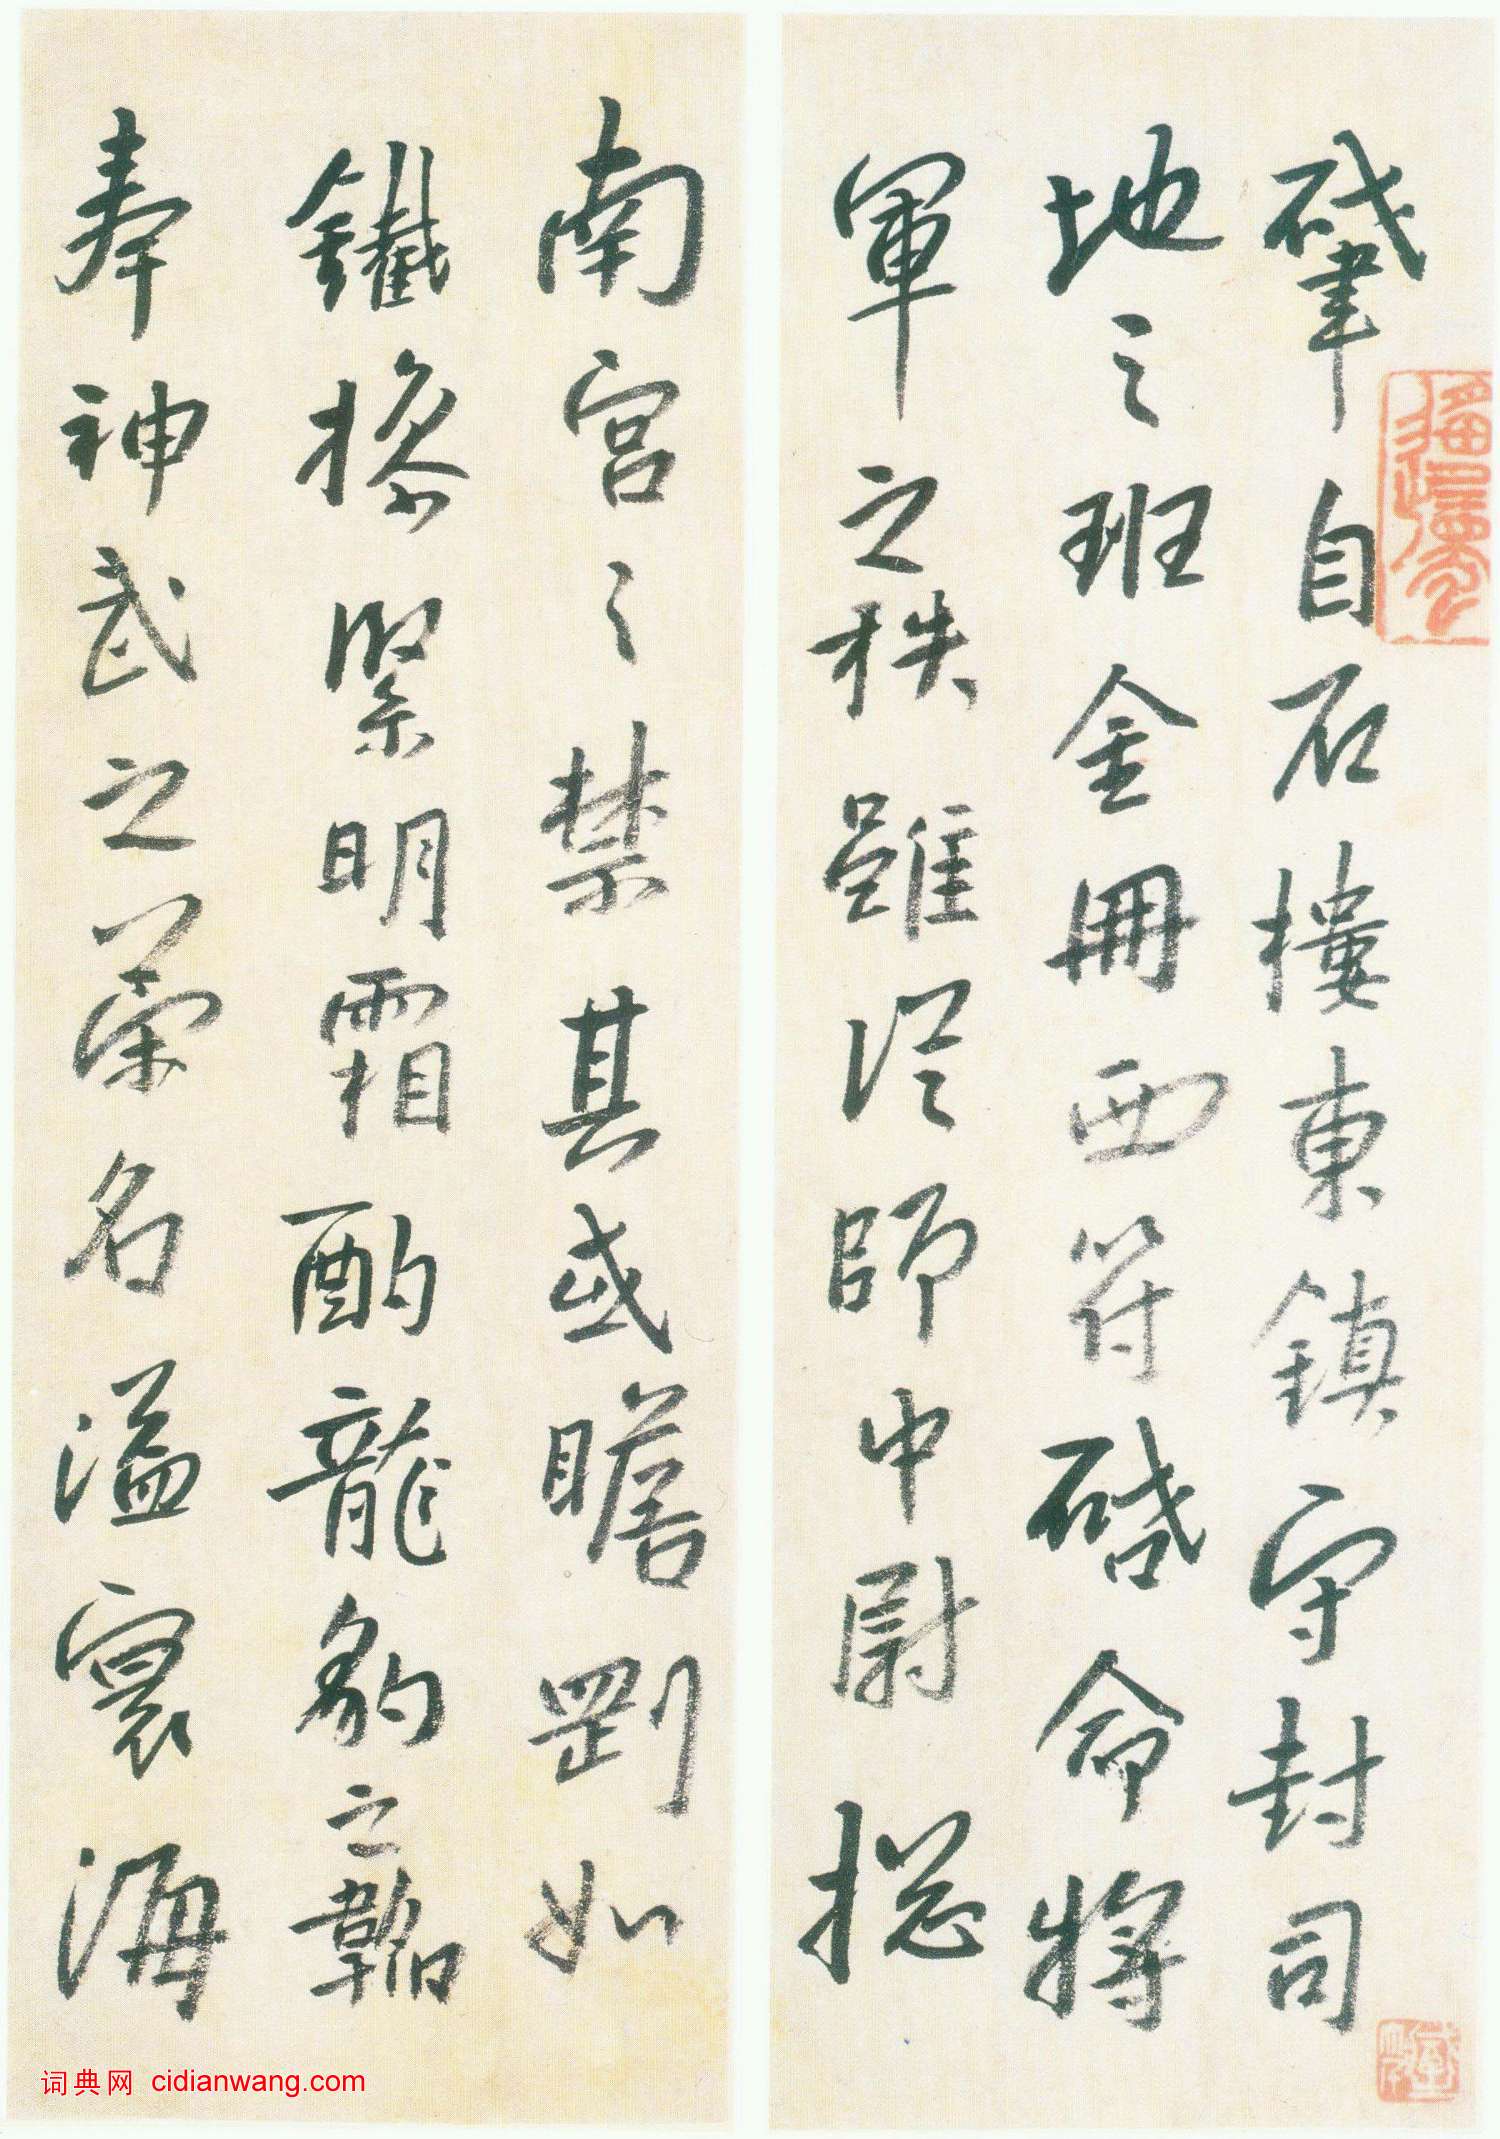 肇自石樓東鎮守封司
地之班金冊西符啓命將
軍之秩雖從師中尉揔
南宮之禁其或瞻劉如
鐵操緊明霜酌龍豹之韜
奉神武之榮名溢寰海
词典网 cidianwang.com